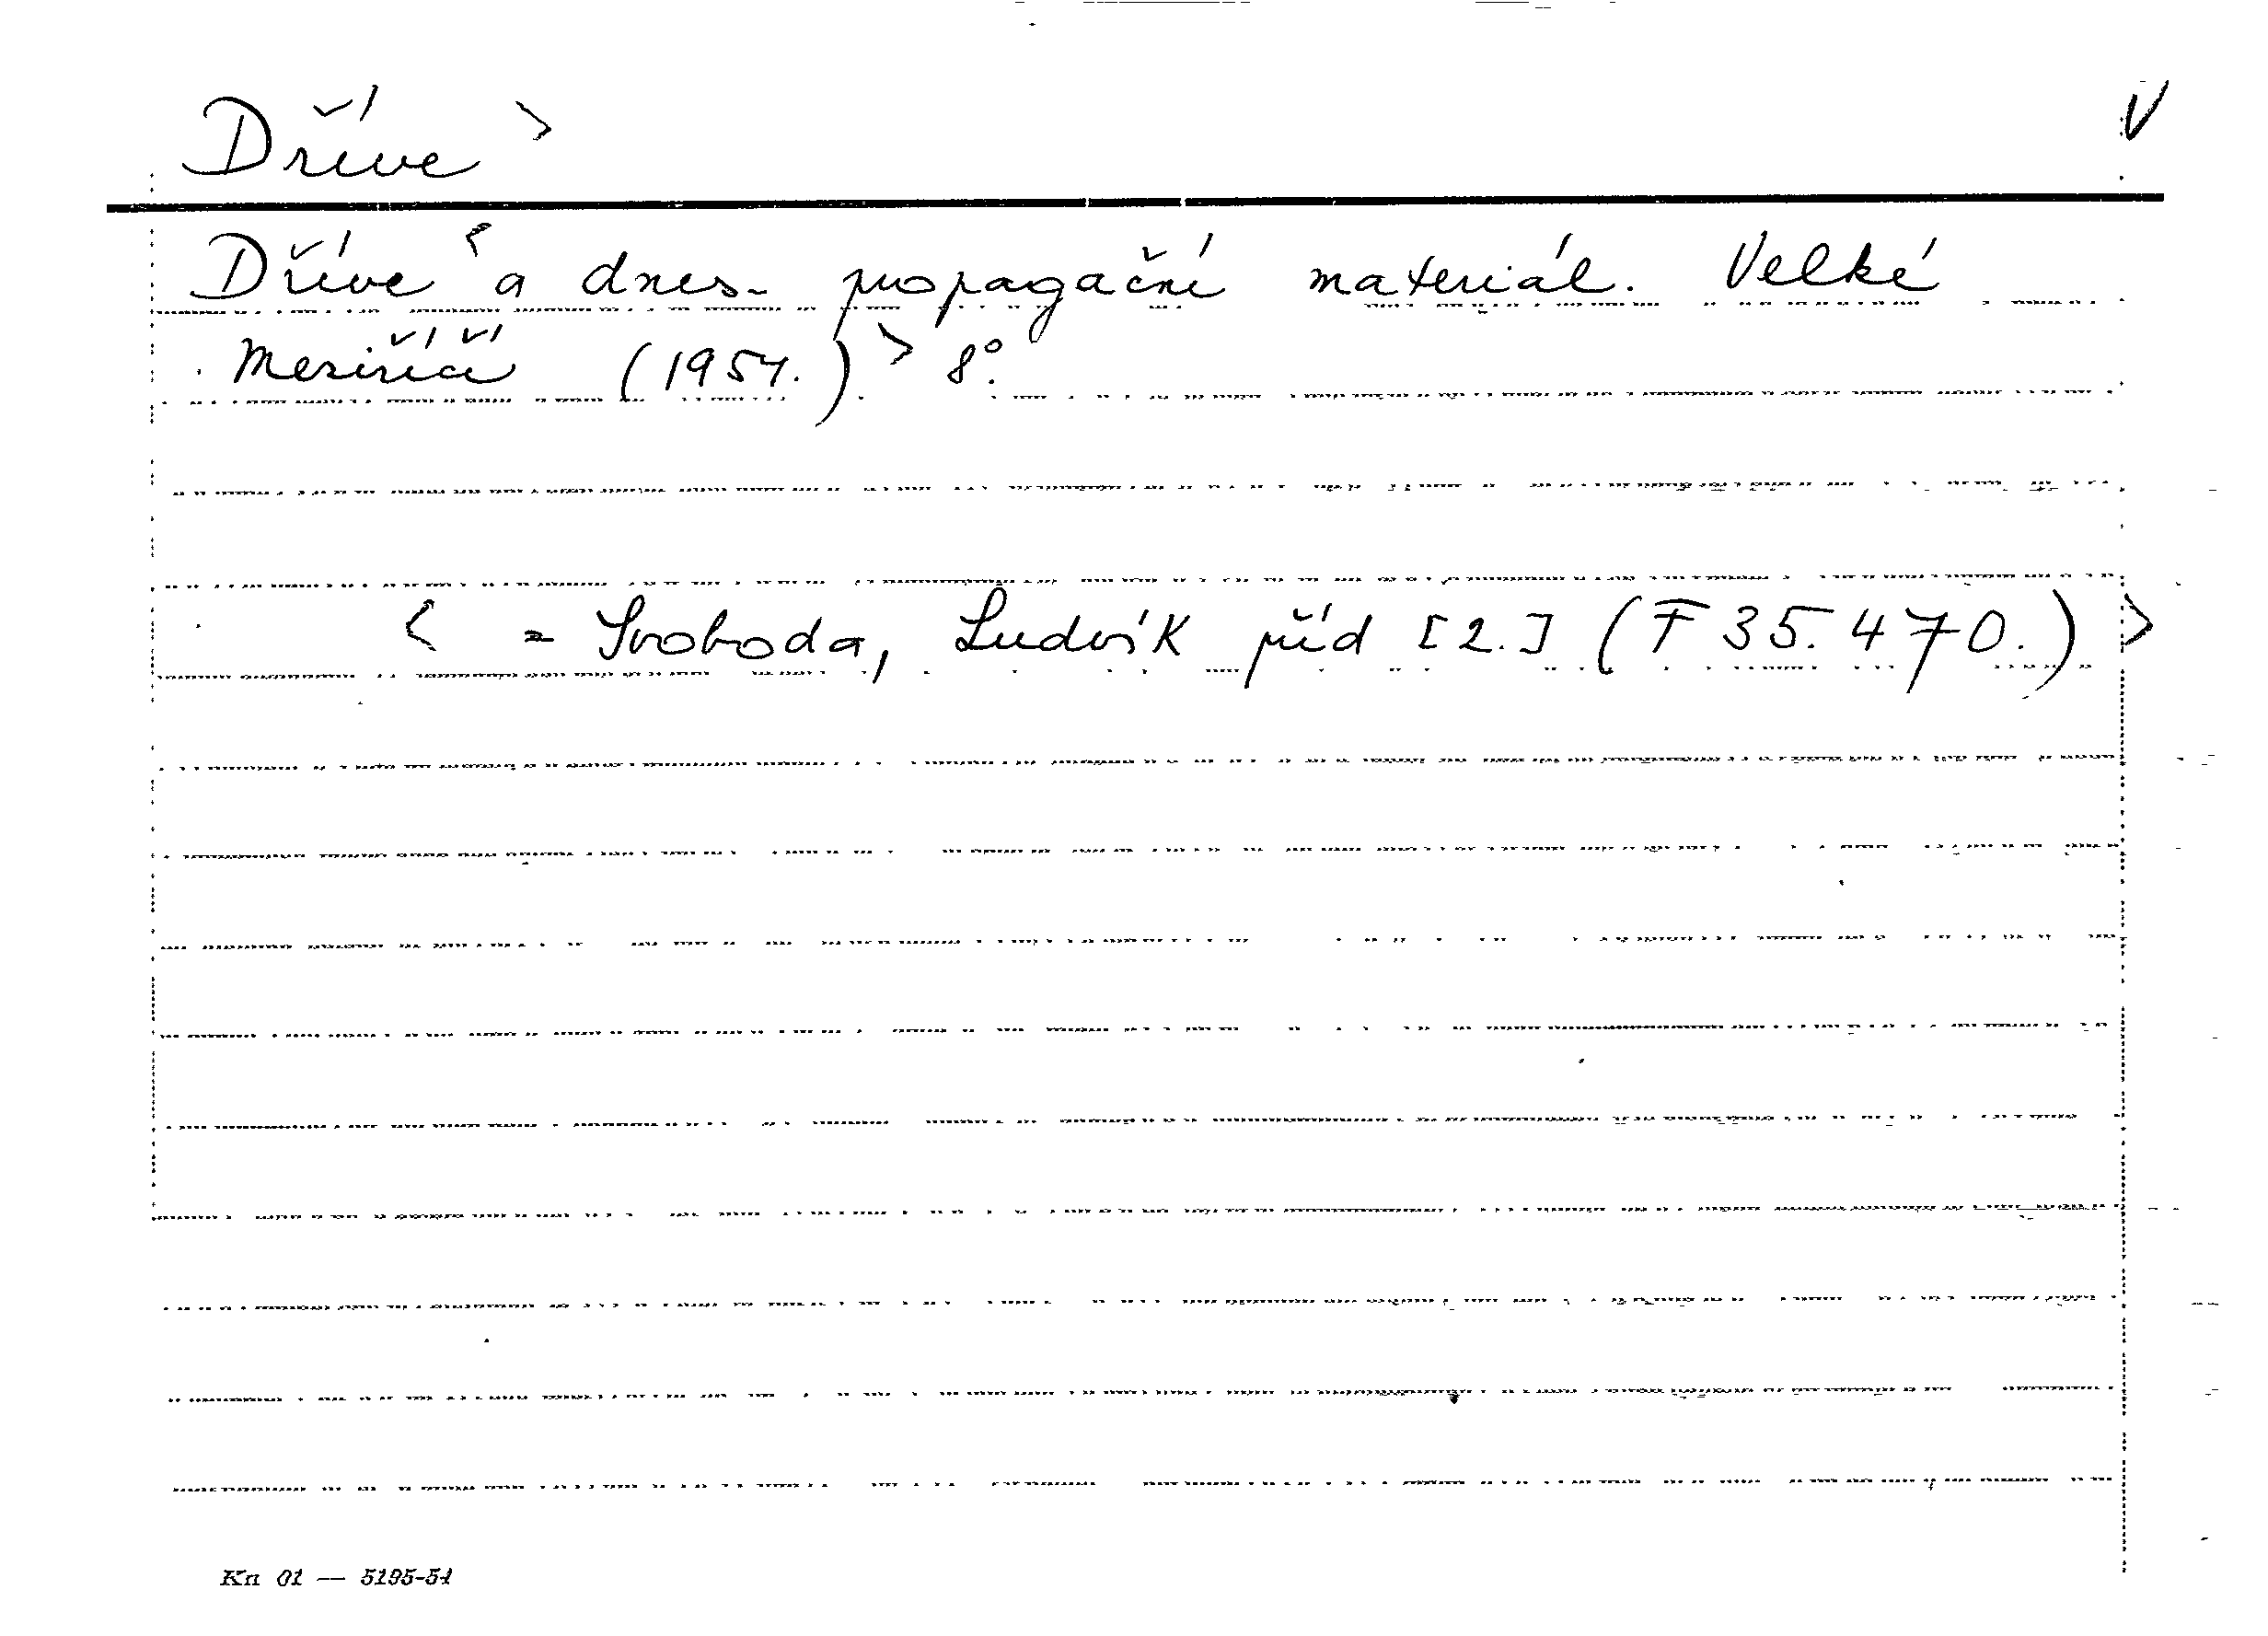 Dříve > V
Dříve < a dnes - propagační materiál. Velké
Meziříčí (1954.) > 8°.
< = Svoboda, Ludvík příd [2.] (F 35.470.) >
Kn 01 — 5195-54